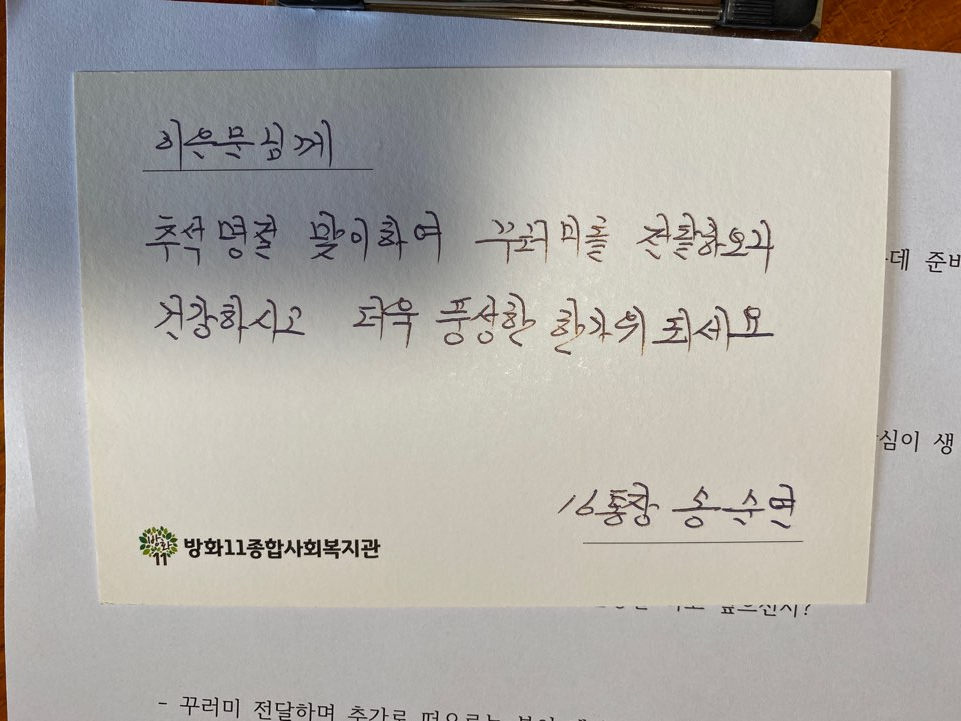 추석 명절 맞이하여 꾸러미를 전달하오니
건강하시고 더욱 풍성한 한가위 되세요
16통장 송순연
방화11
방화11종합사회복지관
데 준비
심이 생
- 꾸러미 전달하며 추가로 떠오르는